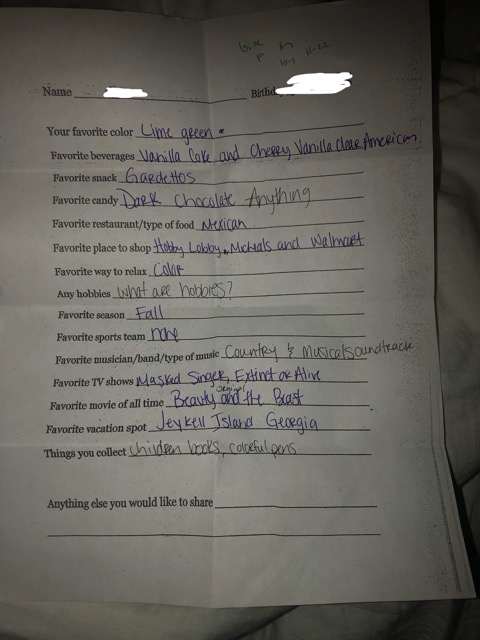 11-22
Name
Birthd
Your favorite color Lime green
Favorite beverages Vanilla Coke and Cherry Vanilla Clear American
Favorite snack Gardettos
Favorite candy Dark Chocolate Anything
Favorite restaurant/type of food Mexican
Favorite place to shop Hobby Lobby, Micheals and Walmart
Favorite way to relax Color
Any hobbies what are hobbies?
Favorite season Fall
Favorite sports team none
Favorite musician/band/type of music Country & Musical soundtrack
Favorite TV shows Masked Singer, Extinct or Alive
Favorite movie of all time Beauty and the Beast
Favorite vacation spot Jeykell Island Georgia
Things you collect children books, colorful pens
Anything else you would like to share